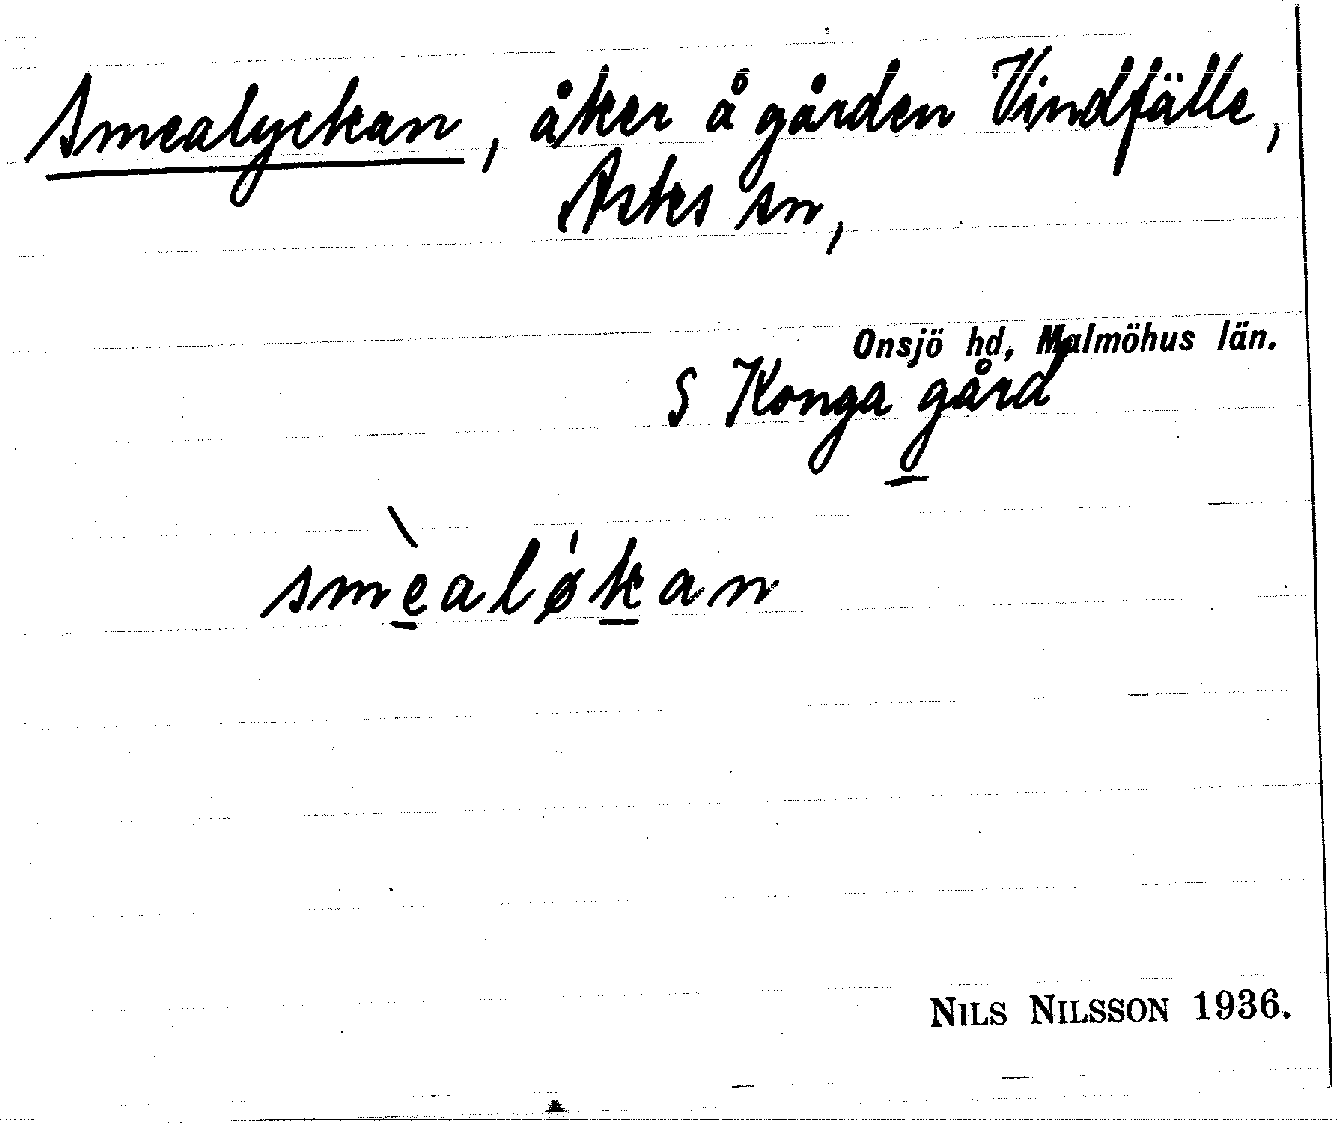 Smealyckan, åker å gården Vindfälle,
Asks sn,
Onsjö hd, Malmöhus län.
S Konga gård
smèaløkan
NILS NILSSON 1936.